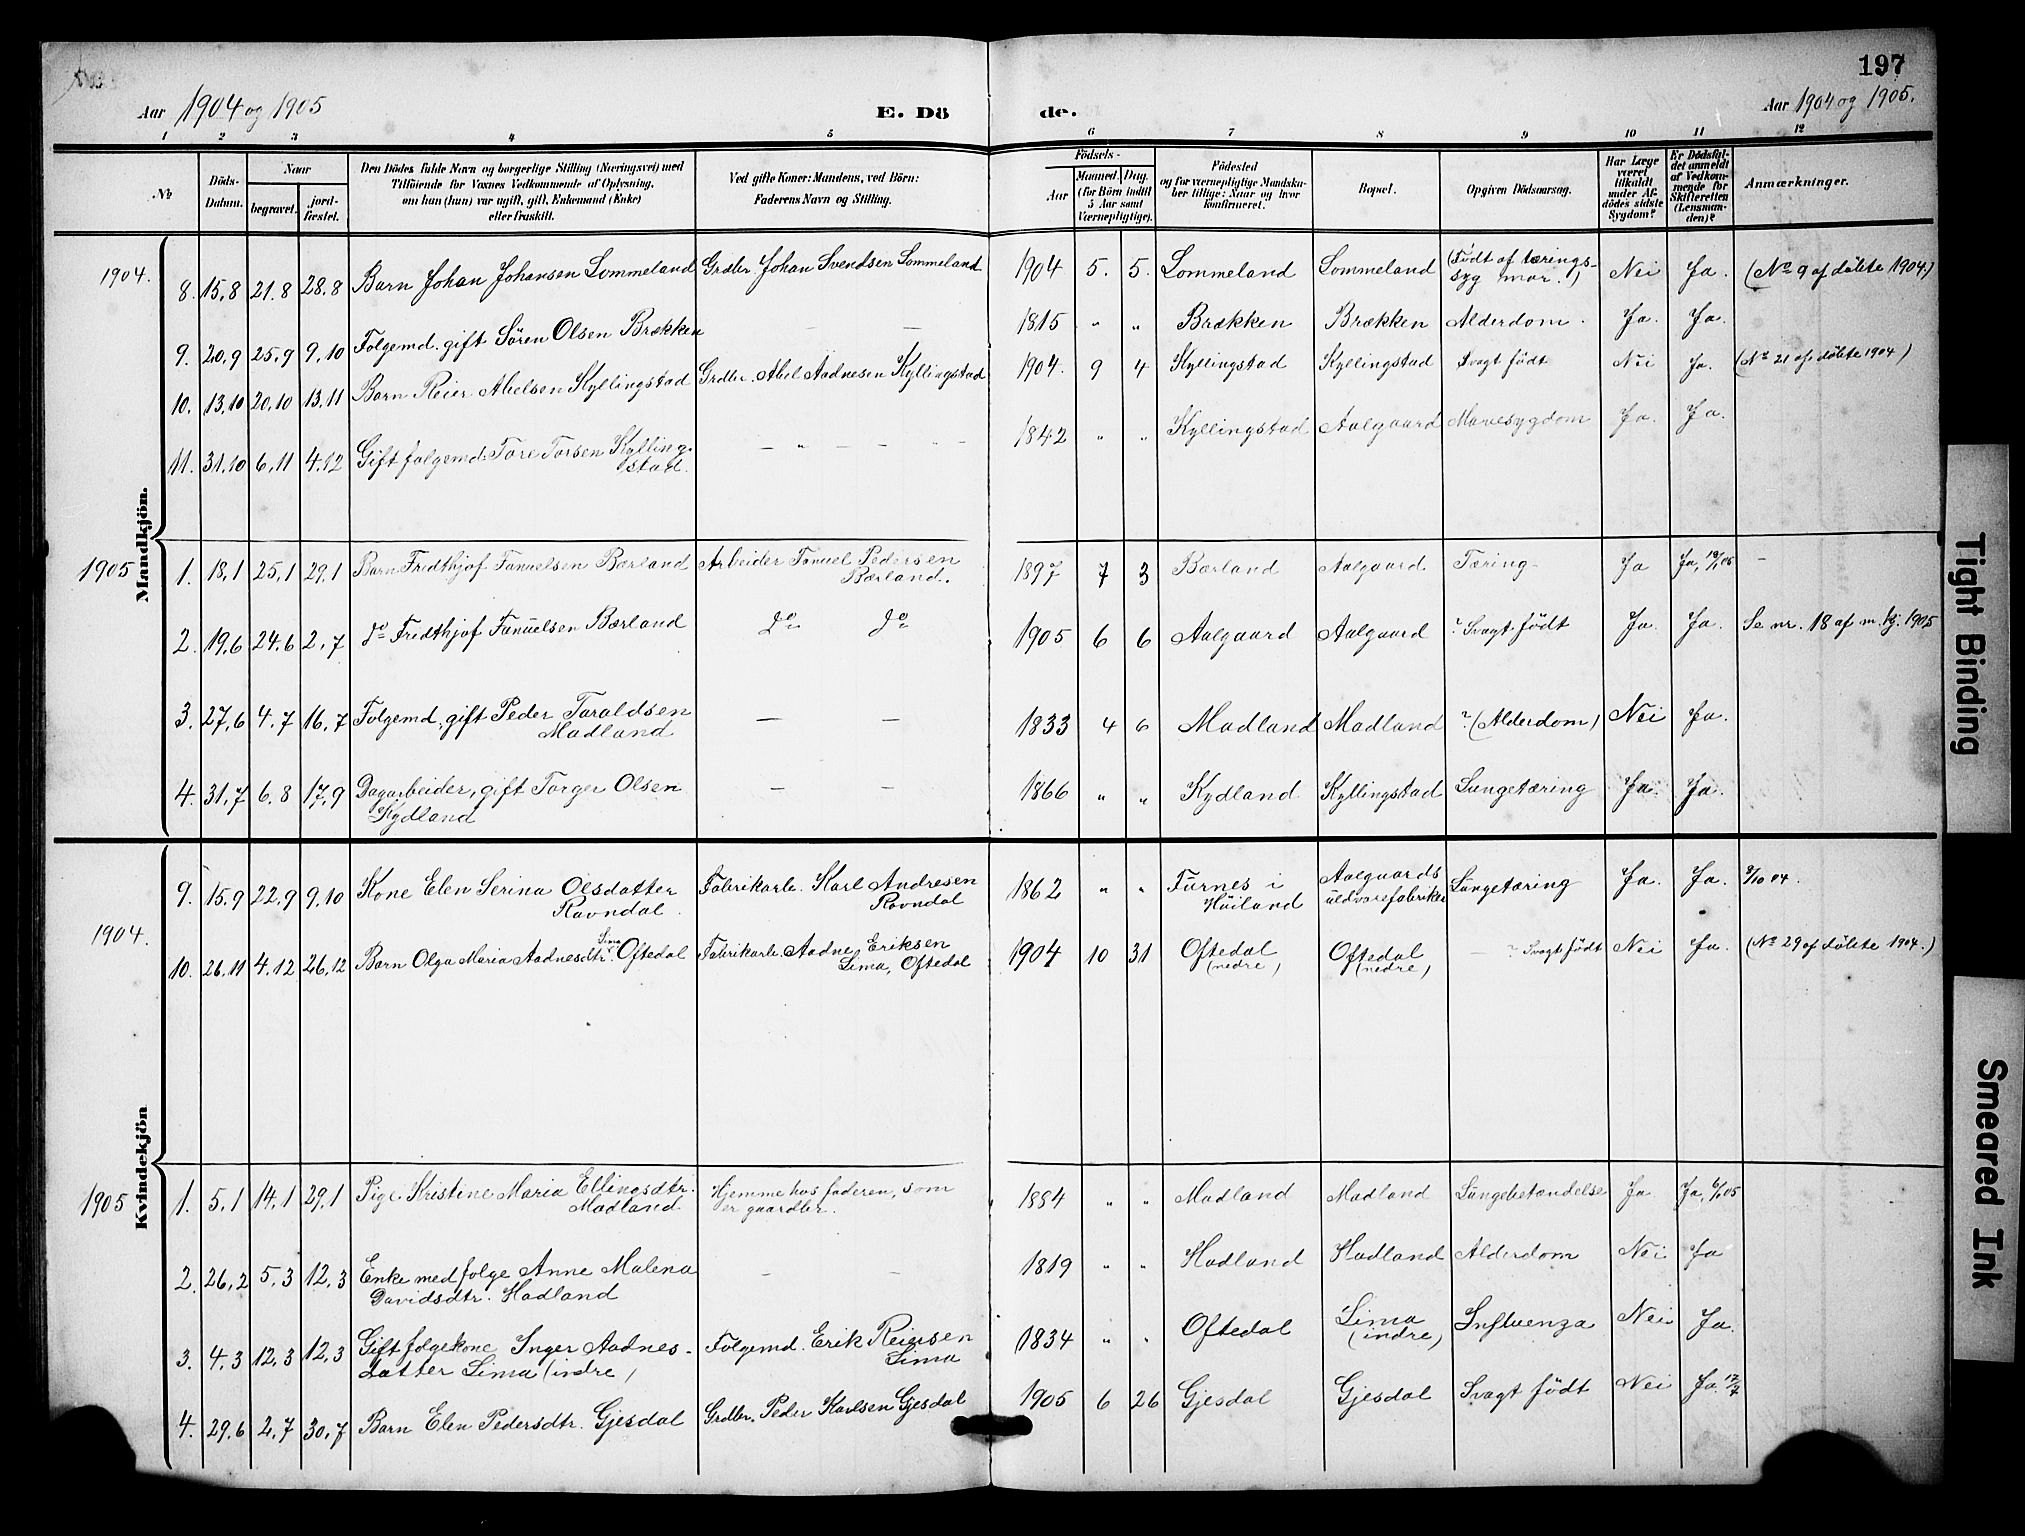 197
Aar 1904 og 1905 E. Dö de. Aar 1904 og 1905.
1 2 3 4 5 6 7 8 9 10 11 12
No
Döds-Datum.
Naar
begravet.
jord-fæstet.
Den Dödes fulde Navn og borgerlige Stilling (Næringsvei) med
Tilföiende for Voxnes Vedkommende af Oplysning,
om han (hun) var ugift, gift, Enkemand (Enke)
eller fraskilt.
Ved gifte Koner: Mandens, ved Börn:
Faderens Navn og Stilling.
Födsels-
Aar
Maaned. Dag.
(for Börn indtil
5 Aar samt
Værnepligtige).
Födested
og for værnepligtige Mandska-
ber tillige: Naar og hvor
konfirmeret.
Bopæl.
Opgiven Dödsaarsag.
Har Læge
været
tilkaldt
under Af-
dödes sidste
Sygdom?
Er Dödsfal-
det anmeldt
af Vedkom-
mende for
Skifteretten
(Lensman-
den)?
Anmærkninger.
Mandkjön.
1904.
8. 15,8 21.8 28,8 Barn Johan Johansen Lommeland Grdbr. Johan Svendsen Lommeland 1904 5. 5. Lommeland Lommeland (Födt af tærings-
syg mor.!) Nei Ja. (No 9 af döbte 1904.)
9. 20,9 25,9 9,10 Folgemd. gift Sören Olsen Brækken — — 1815 " " Brækken Brækken Alderdom. Ja. Ja.
10. 13,10 20,10 13,11 Barn Reier Abelsen Kyllingstad Grdbr. Abel Aadnesen Kyllingstad 1904. 9 4 Kyllingstad Kyllingstad Svagt födt Nei Ja. (No 21 af döbte 1904)
11. 31,10 6,11 4,12 Gift folgemd. Tore Torsen Kylling-
stad. 1842 " " Kyllingstad Aalgaard Mavesygdom Ja. Ja.
1905
1. 18,1 25,1 29,1 Barn Fridthjof Fanuelsen Bærland Arbeider Fanuel Pedersen
Bærland. 1897 7 3 Bærland Aalgaard Tæring Ja Ja, 19/1 05 —
2. 19,6 24,6 2,7 do Fridthjof Fanuelsen Bærland do do 1905 6 6 Aalgaard Aalgaard ? Svagt födt Ja. Ja. Se nr. 18 af m.kj. 1905
3. 27,6 4,7 16,7 Folgemd, gift Peder Taraldsen
Madland — — 1833 4 6 Madland Madland ? (Alderdom) Nei Ja.
4. 31,7 6,8 17,9 Dagarbeider, gift Torger Olsen
Kydland — — 1866 " " Kydland Kyllingstad Lungetæring Ja. Ja.
Kvindekjön
1904.
9. 15,9 22,9 9,10 Kone Elen Serina Olsdatter
Ravndal. Fabrikarb. Karl Andresen
Ravndal 1862 " " Furnes i
Höiland Aalgaards
uldvarefabriker Lungetæring Ja. Ja. 9/10 04.
10. 26,11 4,12 26,12 Barn Olga Maria Aadnesdtr. Lima Oftedal Fabrikarb. Aadne Eriksen
Lima, Oftedal 1904 10 31 Oftedal
(nedre) Oftedal
(nedre) — ? Svagt födt Nei Ja. (No 29 af döbte 1904.)
1905
1. 5,1 14,1 29,1 Pige Kristine Maria Ellingsdtr.
Madland Hjemme hos faderen, som
er gaardbr. 1884 " " Madland Madland Lungebetændelse Ja Ja, 6/1 05
2. 26,2 5,3 12,3 Enke med folge Anne Malena
Davidsdtr. Hadland — — 1819 " " Hadland Hadland Alderdom Nei Ja
3. 4,3 12,3 12,3 Gift folgekone Inger Aadnes-
datter Lima (indre) Folgemd. Erik Reiersen
Lima 1834 " " Oftedal Lima
(indre) Influenza Nei Ja.
4. 29,6 2,7 30,7 Barn Elen Pedersdtr. Gjesdal Grdbr. Peder Karlsen Gjesdal 1905 6 26 Gjesdal Gjesdal Svagt födt Nei Ja. 17/7
Tight Binding
Smeared Ink